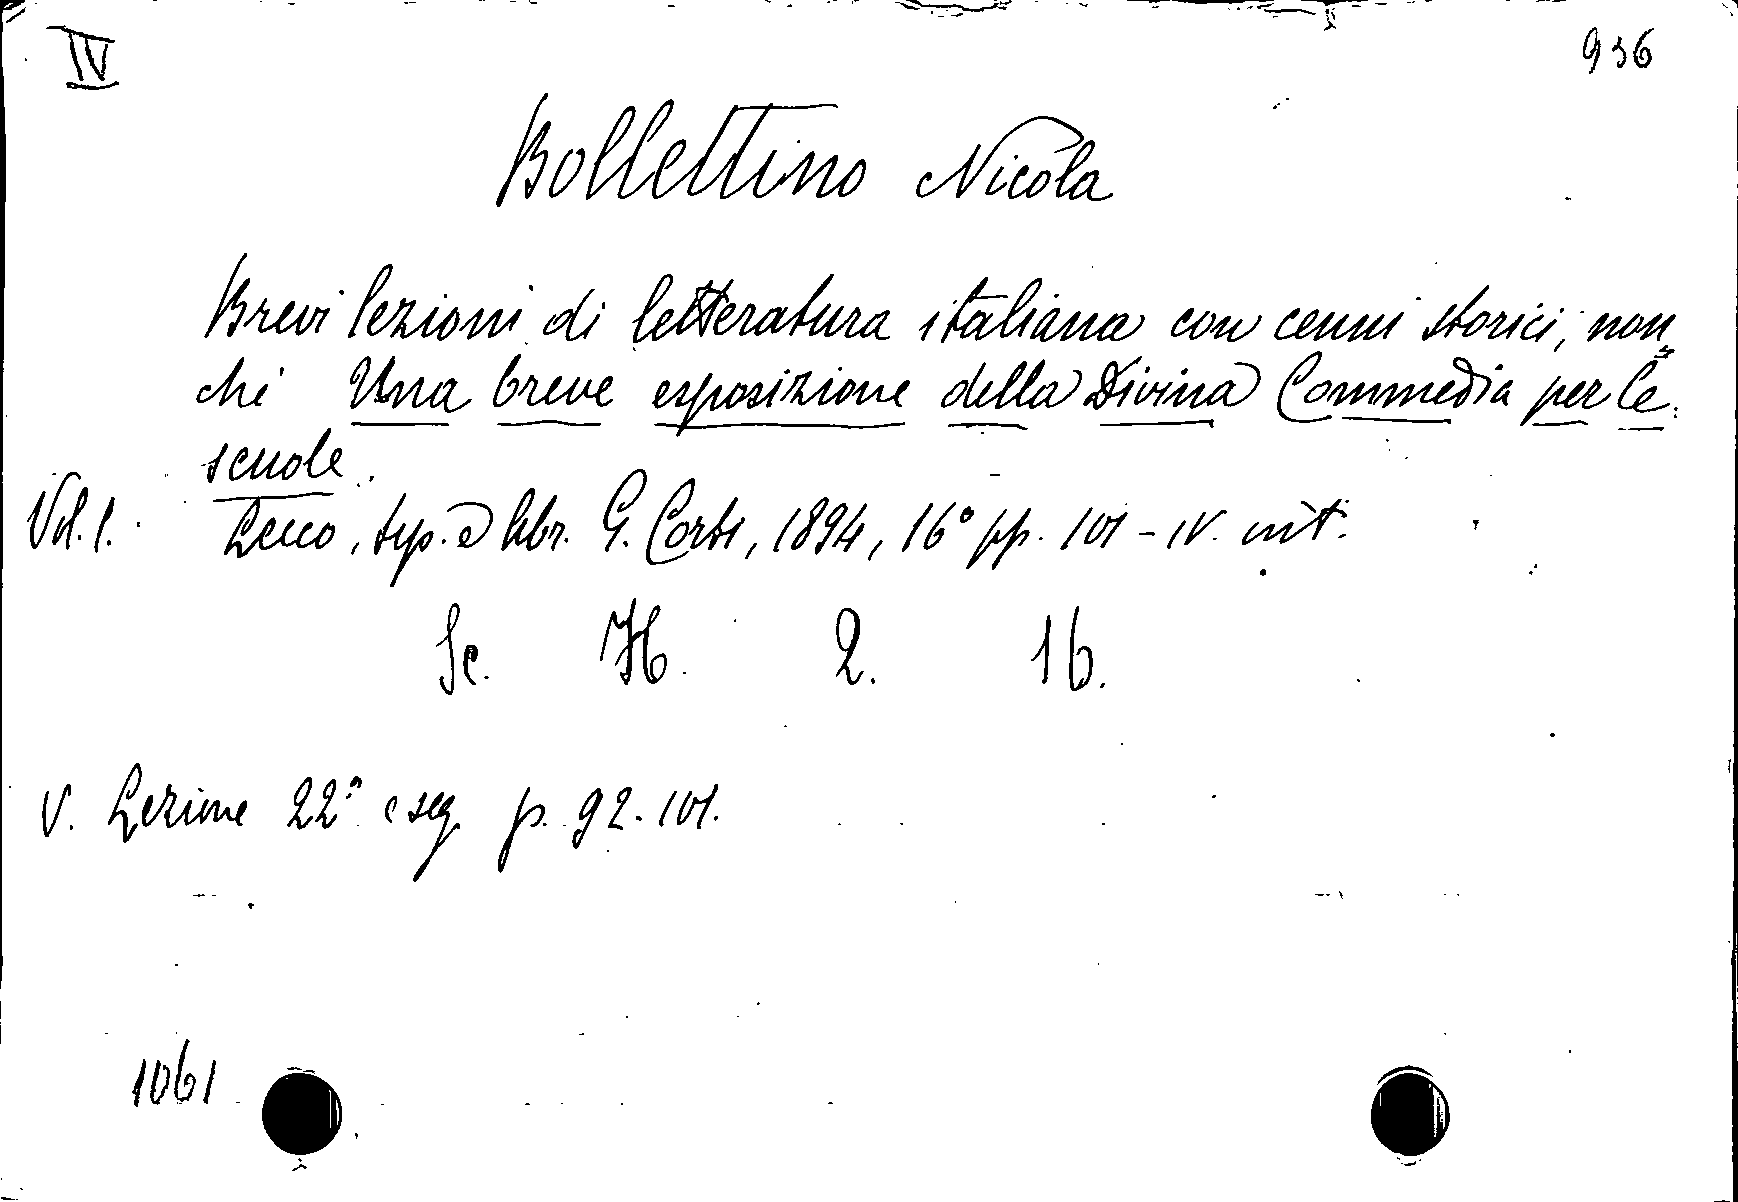 IV 936
Bollettino Nicola
Brevi lezioni di letteratura italiana con cenni storici, non=
chè Una breve esposizione della Divina Commedia per le
scuole.
Vol. I. Lecco, tip. e libr. G. Corti, 1894, 16° pp. 101 - IV. int.
Sc. H. 2. 16.
V. Lezione 22ª e seg. p. 92-101.
1061